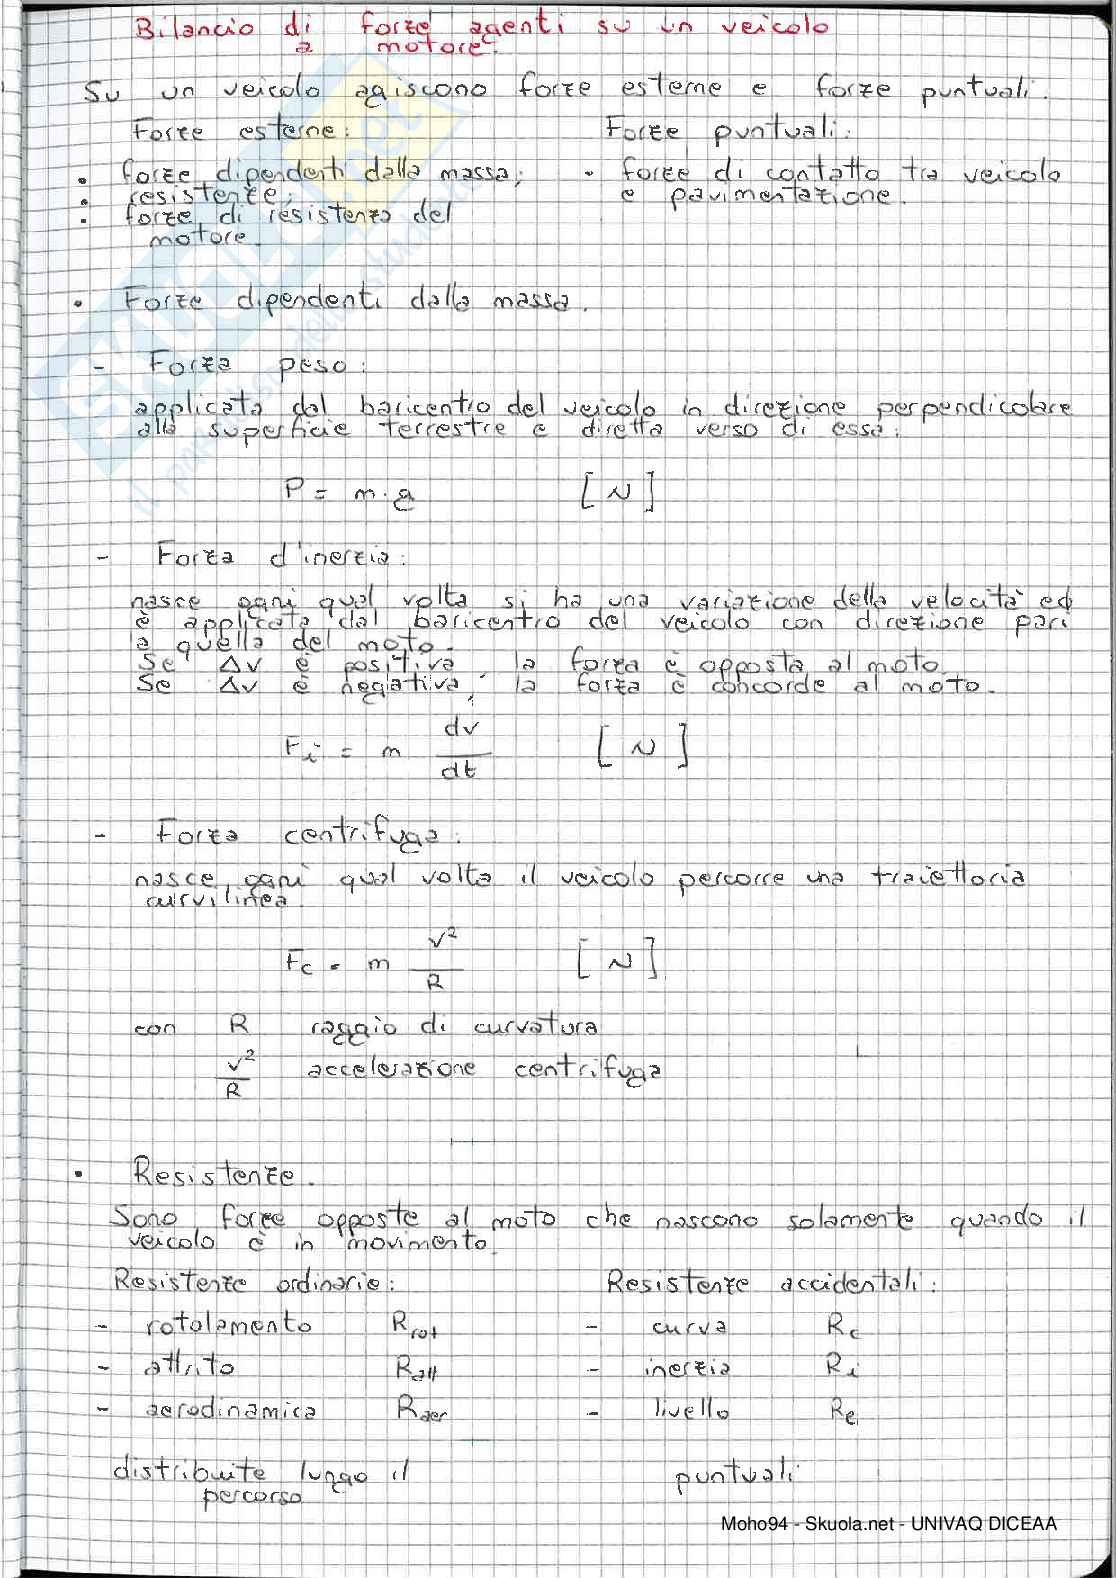 Bilancio di forze agenti su un veicolo
a motore.
Su un veicolo agiscono forze esterne e forze puntuali.
Forze esterne: Forze puntuali:
• forze dipendenti dalla massa; • forze di contatto tra veicolo
• resistenze; e pavimentazione.
• forze di resistenza del
motore.
• Forze dipendenti dalla massa.
- Forza peso:
applicata dal baricentro del veicolo in direzione perpendicolare
alla superficie terrestre e diretta verso di essa:
P = m·g [N]
- Forza d'inerzia:
nasce ogni qual volta si ha una variazione della velocità ed
è applicata dal baricentro del veicolo con direzione pari
a quella del moto.
Se Δv è positiva, la forza è opposta al moto.
Se Δv è negativa, la forza è concorde al moto.
Fi = m dv/dt [N]
- Forza centrifuga:
nasce ogni qual volta il veicolo percorre una traiettoria
curvilinea.
Fc = m v²/R [N]
con R raggio di curvatura
v²/R accelerazione centrifuga
• Resistenze.
Sono forze opposte al moto che nascono solamente quando il
veicolo è in movimento.
Resistenze ordinarie: Resistenze accidentali:
- rotolamento Rrot - curva Rc
- attrito Ratt - inerzia Ri
- aerodinamica Raer - livello Re
distribuite lungo il puntuali
percorso
Moho94 - Skuola.net - UNIVAQ DICEAA